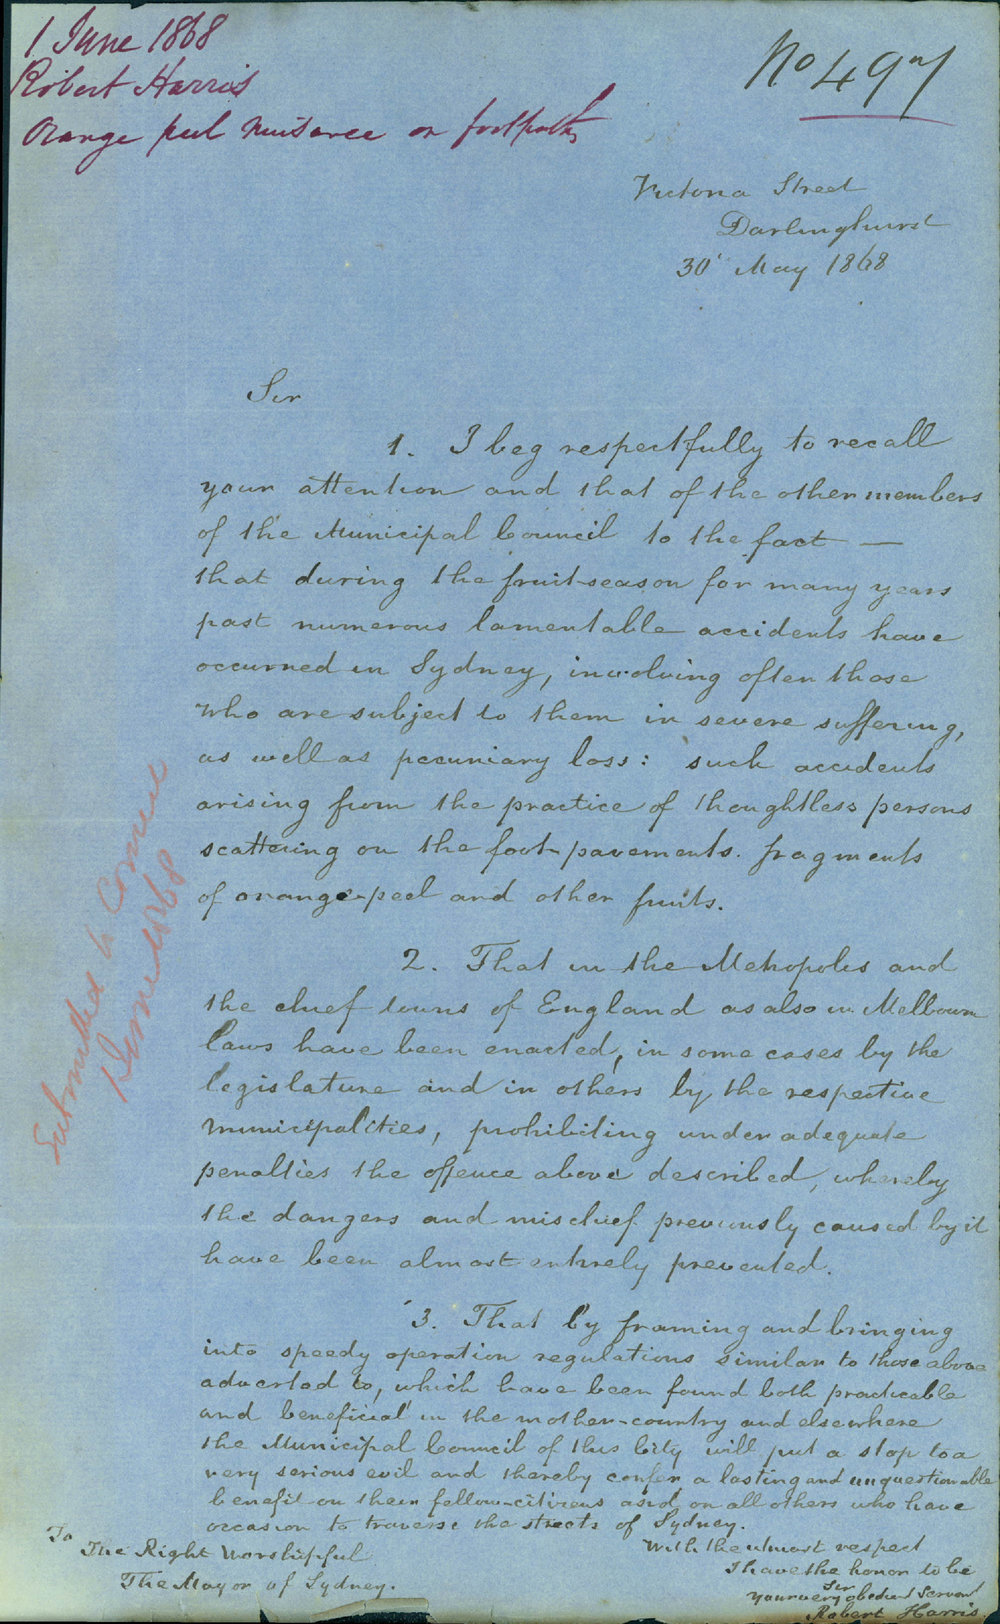 1 June 1868
Robert Harris
Orange peel Nuisance on footpaths
No 497
Victoria Street
Darlinghurst
30 May 1868
Sir
1. I beg respectfully to recall
your attention and that of the other members
of the Municipal Council to the fact —
that during the fruit-season for many years
past numerous lamentable accidents have
occurred in Sydney, involving often those
who are subject to them in severe suffering,
as well as pecuniary loss: such accidents
arising from the practice of thoughtless persons
scattering on the foot-pavements. fragments
of orange-peel and other fruits.
2. That in the Metropolis and
the chief towns of England as also in Melbourne
laws have been enacted, in some cases by the
legislature and in others by the respective
municipalities, prohibiting under adequate
penalties the offence above described, whereby
the dangers and mischief previously caused by it
have been almost entirely prevented.
3. That by framing and bringing
into speedy operation regulations similar to those above
adverted to, which have been found both practicable
and beneficial in the mother-country and elsewhere
the Municipal Council of this City will put a stop to a
very serious evil and thereby confer a lasting and unquestionable
benefit on their fellow-citizens and on all others who have
occasion to traverse the streets of Sydney.
With the utmost respect
I have the honor to be
Sir
your very obedient Servant
Robert Harris
To
The Right Worshipful
The Mayor of Sydney.
Submitted to Council
1 June 1868